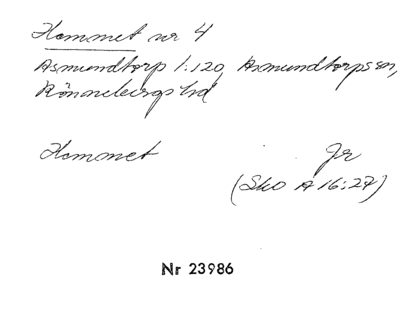 Hemmet nr 4
Asmundtorp 1:120, Asmundtorps sn,
Rönnebergs hd
Hemmet Jr
(Sko A 16:27)
Nr 23986